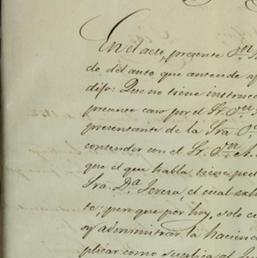 En el acto, presente D.n
do del auto que antecede
dijo: Que no tiene instrucc
presente caso por el Sr. D.n
presentante de la Sra. D.
contender con el Sr. D.n A
que el que habla, tiene pod
Sra. D.a Teresa, el cual
to; pero que por hoy, solo
administrar la hacienda
plicar como suplica al